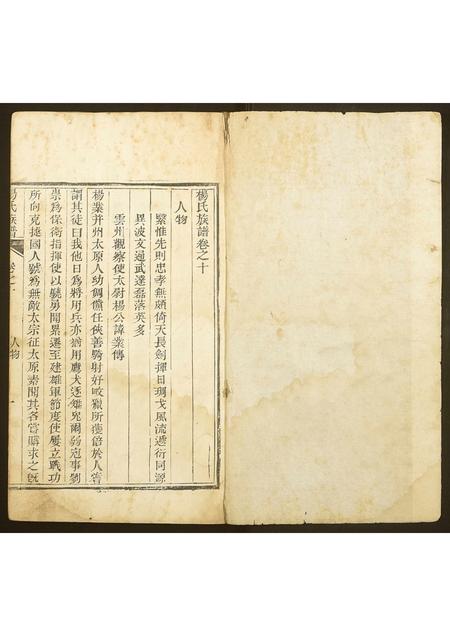 楊氏族譜卷之十
人物
繄惟先則忠孝無頗倚天長劍揮日琱戈風流遞衍同源
異波文通武達磊落英多
雲州觀察使太尉楊公諱業傳
楊業并州太原人幼倜儻任俠善騎射好畋獵所獲倍於人嘗
謂其徒曰我他日爲將用兵亦猶用鷹犬逐雉兔爾弱冠事劉
崇爲保衛指揮使以驍勇聞累遷至建雄軍節度使屢立戰功
所向克捷國人號爲無敵太宗征太原素聞其名嘗購求之旣
楊氏族譜
卷之十
人物
一